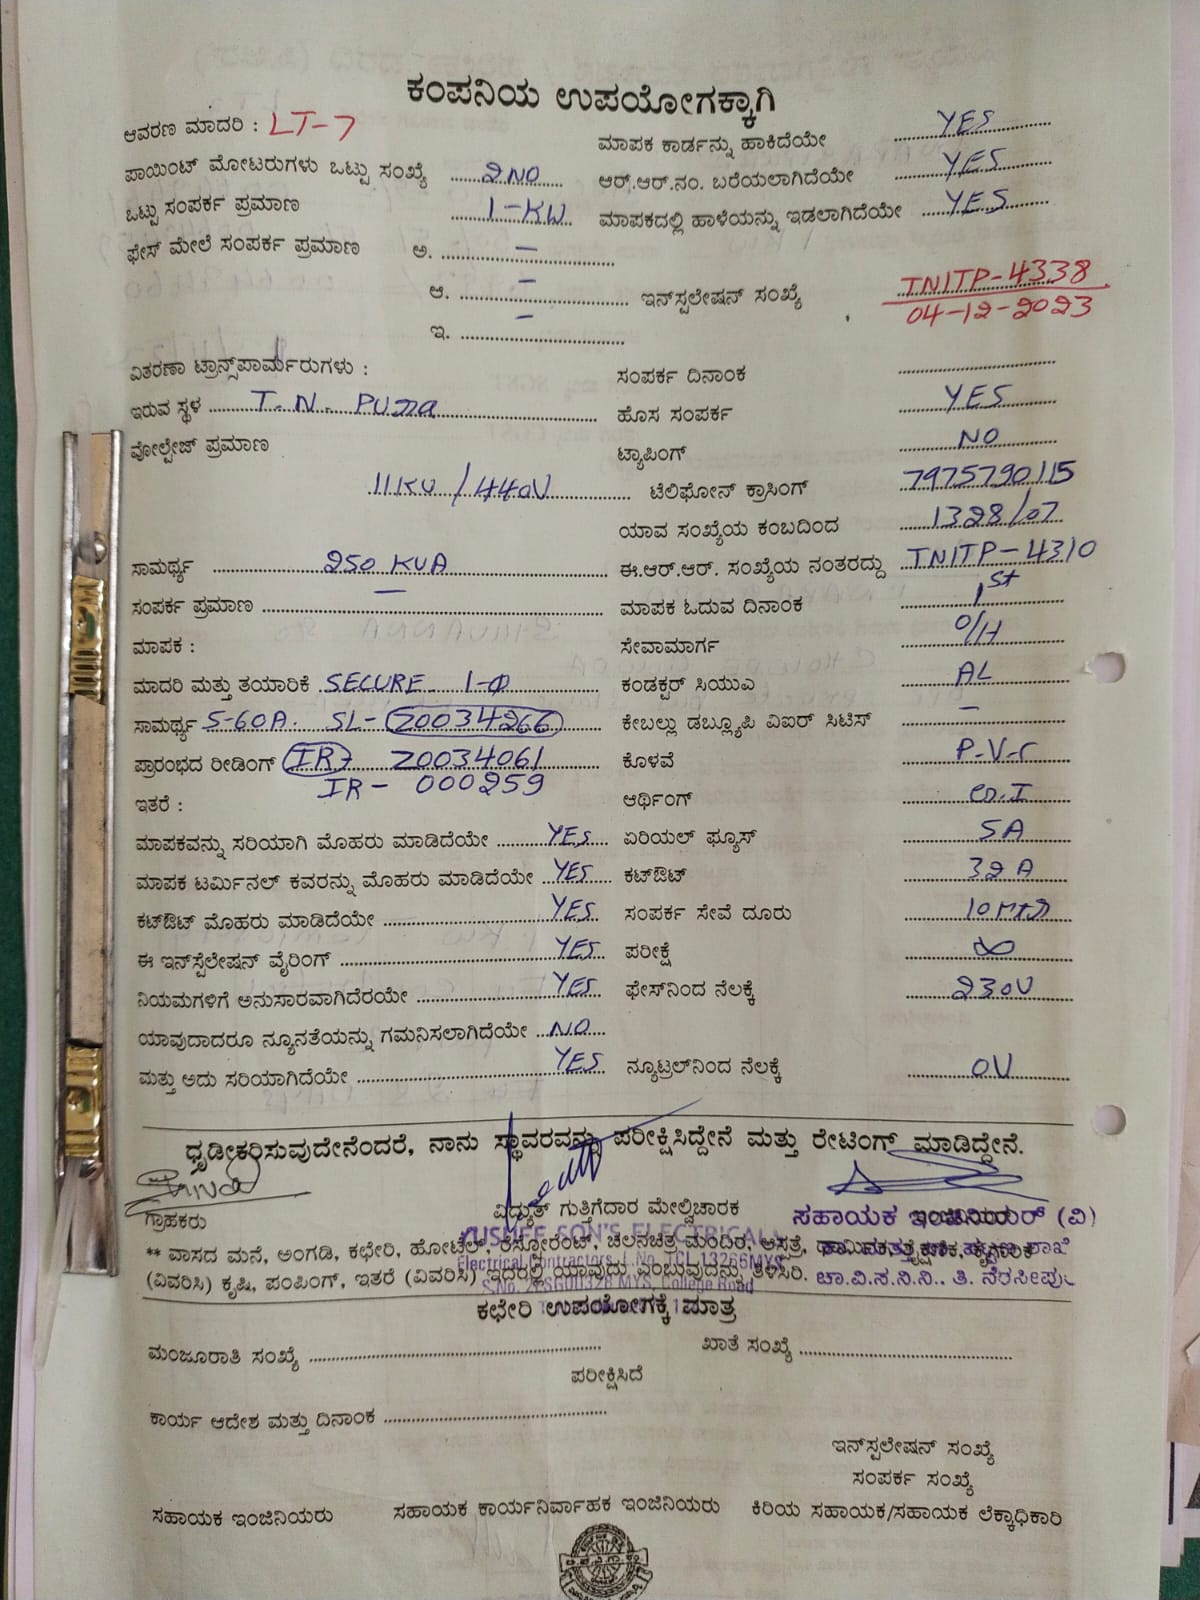 ಕಂಪನಿಯ ಉಪಯೋಗಕ್ಕಾಗಿ
ಆವರಣ ಮಾದರಿ : LT-7
ಮಾಪಕ ಕಾರ್ಡನ್ನು ಹಾಕಿದೆಯೇ YES
ಪಾಯಿಂಟ್ ಮೋಟರುಗಳು ಒಟ್ಟು ಸಂಖ್ಯೆ 2NO
ಆರ್.ಆರ್.ನಂ. ಬರೆಯಲಾಗಿದೆಯೇ YES
ಒಟ್ಟು ಸಂಪರ್ಕ ಪ್ರಮಾಣ 1-KW
ಮಾಪಕದಲ್ಲಿ ಹಾಳೆಯನ್ನು ಇಡಲಾಗಿದೆಯೇ YES
ಫೇಸ್ ಮೇಲೆ ಸಂಪರ್ಕ ಪ್ರಮಾಣ ಅ. –
ಆ. –
ಇನ್‌ಸ್ಟಲೇಷನ್ ಸಂಖ್ಯೆ TNITP-4338
04-12-2023
ಇ. –
ವಿತರಣಾ ಟ್ರಾನ್ಸ್‌ಪಾರ್ಮರುಗಳು :
ಸಂಪರ್ಕ ದಿನಾಂಕ
ಇರುವ ಸ್ಥಳ T.N. PURA
ಹೊಸ ಸಂಪರ್ಕ YES
ವೋಲ್ಟೇಜ್ ಪ್ರಮಾಣ
ಟ್ಯಾಪಿಂಗ್ NO
11KV/440V
ಟೆಲಿಫೋನ್ ಕ್ರಾಸಿಂಗ್ 7975790115
ಯಾವ ಸಂಖ್ಯೆಯ ಕಂಬದಿಂದ 1328/07
ಸಾಮರ್ಥ್ಯ 250 KVA
ಈ.ಆರ್.ಆರ್. ಸಂಖ್ಯೆಯ ನಂತರದ್ದು TNITP-4310
ಸಂಪರ್ಕ ಪ್ರಮಾಣ –
ಮಾಪಕ ಓದುವ ದಿನಾಂಕ 1st
ಮಾಪಕ :
ಸೇವಾಮಾರ್ಗ O/H
ಮಾದರಿ ಮತ್ತು ತಯಾರಿಕೆ SECURE 1-Φ
ಕಂಡಕ್ಟರ್ ಸಿಯುಎ AL
ಸಾಮರ್ಥ್ಯ 5-60A. SL- Z0034266
ಕೇಬಲ್ಲು ಡಬ್ಲ್ಯೂಪಿ ವಿಐರ್ ಸಿಟಿಸ್ –
ಪ್ರಾರಂಭದ ರೀಡಿಂಗ್ Z0034061
ಕೊಳವೆ P-V-C
IR- 000259
ಇತರೆ :
ಆರ್ಥಿಂಗ್
ಮಾಪಕವನ್ನು ಸರಿಯಾಗಿ ಮೊಹರು ಮಾಡಿದೆಯೇ YES
ಏರಿಯಲ್ ಫ್ಯೂಸ್ 5A
ಮಾಪಕ ಟರ್ಮಿನಲ್ ಕವರನ್ನು ಮೊಹರು ಮಾಡಿದೆಯೇ YES
ಕಟ್‌ಔಟ್ 32A
ಕಟ್‌ಔಟ್ ಮೊಹರು ಮಾಡಿದೆಯೇ YES
ಸಂಪರ್ಕ ಸೇವೆ ದೂರು 10 MTR
ಈ ಇನ್‌ಸ್ಟೆಲೇಷನ್ ವೈರಿಂಗ್ YES
ಪರೀಕ್ಷೆ ∞
ನಿಯಮಗಳಿಗೆ ಅನುಸಾರವಾಗಿದೆರಯೇ YES
ಫೇಸ್‌ನಿಂದ ನೆಲಕ್ಕೆ 230V
ಯಾವುದಾದರೂ ನ್ಯೂನತೆಯನ್ನು ಗಮನಿಸಲಾಗಿದೆಯೇ NO
ಮತ್ತು ಅದು ಸರಿಯಾಗಿದೆಯೇ YES
ನ್ಯೂಟ್ರಲ್‌ನಿಂದ ನೆಲಕ್ಕೆ 0V
ಧೃಡೀಕರಿಸುವುದೇನೆಂದರೆ, ನಾನು ಸ್ಥಾವರವನ್ನು ಪರೀಕ್ಷಿಸಿದ್ದೇನೆ ಮತ್ತು ರೇಟಿಂಗ್ ಮಾಡಿದ್ದೇನೆ.
ಗ್ರಾಹಕರು
ವಿದ್ಯುತ್ ಗುತ್ತಿಗೆದಾರ ಮೇಲ್ವಿಚಾರಕ
ಸಹಾಯಕ ಇಂಜಿನಿಯರ್ (ವಿ)
SON'S ELECTRICAL
** ವಾಸದ ಮನೆ, ಅಂಗಡಿ, ಕಛೇರಿ, ಹೋಟೆಲ್, ರೆಸ್ಟೋರೆಂಟ್, ಚಲನಚಿತ್ರ ಮಂದಿರ, ಆಸ್ಪತ್ರೆ,
Electrical Contractors L.No. TCL 13266MYS
(ವಿವರಿಸಿ) ಕೃಷಿ, ಪಂಪಿಂಗ್, ಇತರೆ (ವಿವರಿಸಿ) ಇದರಲ್ಲಿ ಯಾವುದು ಎಂಬುವುದನ್ನು ತಿಳಿಸಿರಿ.
ಚಾ.ವಿ.ಸ.ನಿ.ನಿ.. ತಿ. ನರಸೀಪುರ
College Road
ಕಛೇರಿ ಉಪಯೋಗಕ್ಕೆ ಮಾತ್ರ
ಮಂಜೂರಾತಿ ಸಂಖ್ಯೆ
ಖಾತೆ ಸಂಖ್ಯೆ
ಪರೀಕ್ಷಿಸಿದೆ
ಕಾರ್ಯ ಆದೇಶ ಮತ್ತು ದಿನಾಂಕ
ಇನ್‌ಸ್ಟಲೇಷನ್ ಸಂಖ್ಯೆ
ಸಂಪರ್ಕ ಸಂಖ್ಯೆ
ಸಹಾಯಕ ಇಂಜಿನಿಯರು
ಸಹಾಯಕ ಕಾರ್ಯನಿರ್ವಾಹಕ ಇಂಜಿನಿಯರು
ಕಿರಿಯ ಸಹಾಯಕ/ಸಹಾಯಕ ಲೆಕ್ಕಾಧಿಕಾರಿ